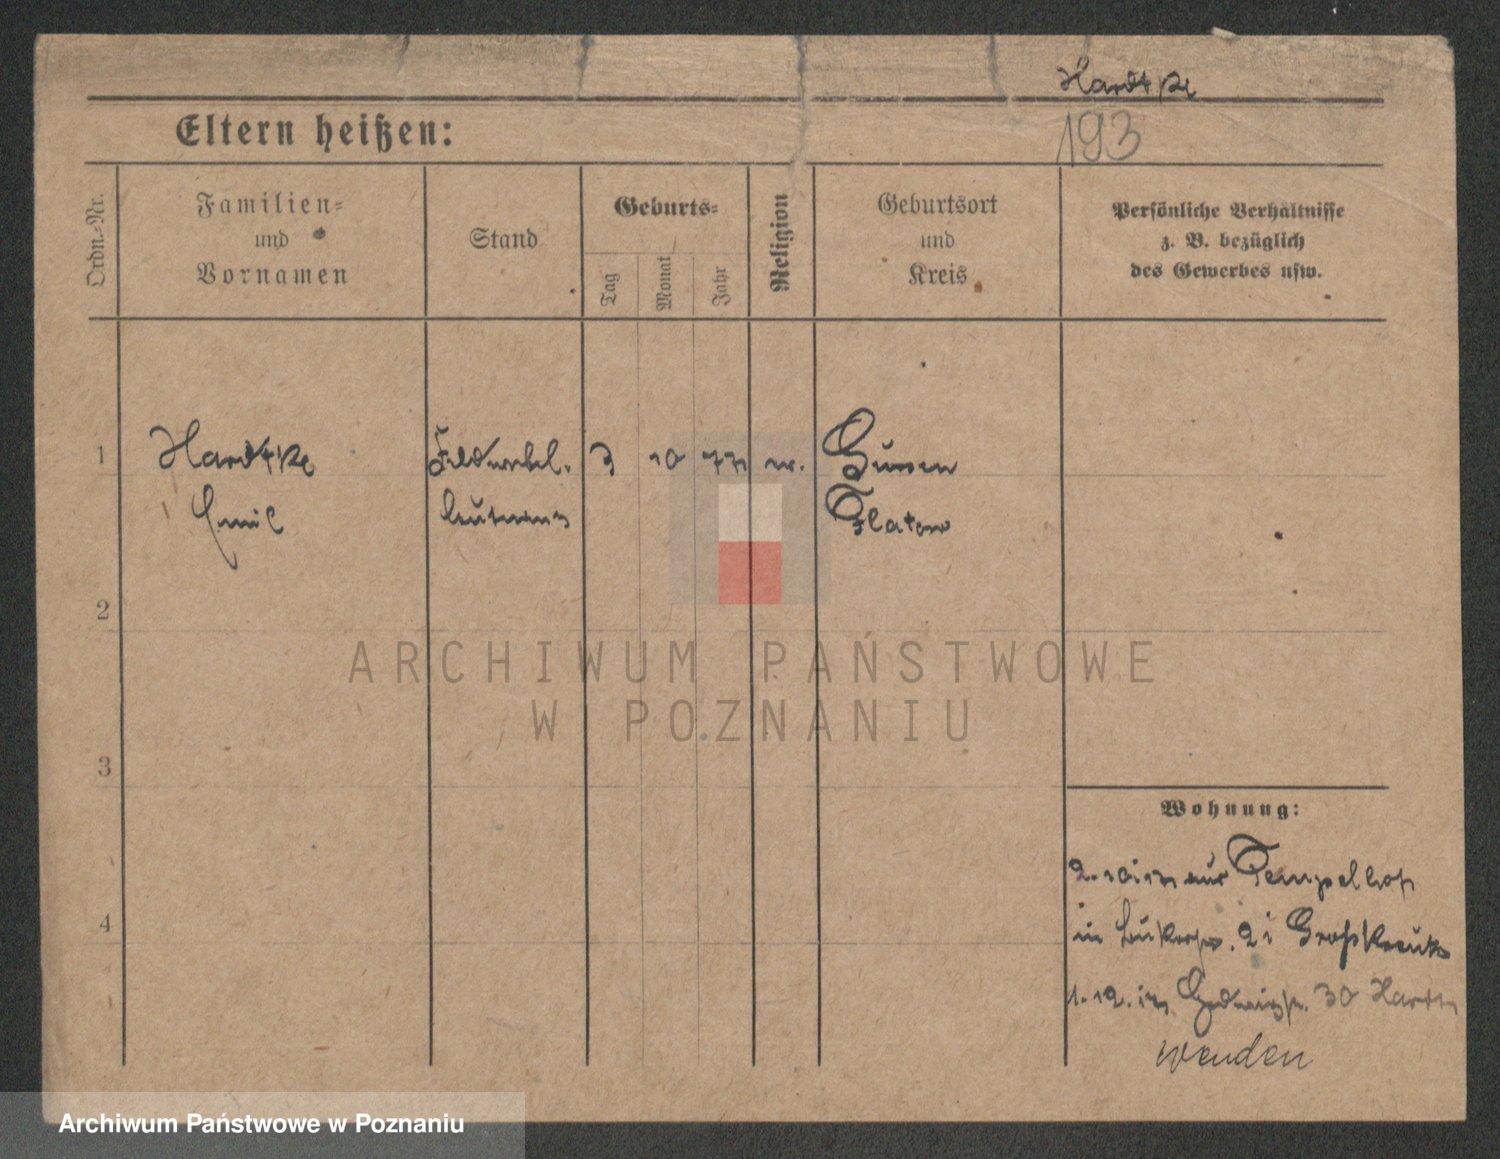 Hardtke
193
Eltern heißen:
Ordn.-Nr.
Familien-
und
Vornamen
Stand
Geburts-
Tag
Monat
Jahr
Religion
Geburtsort
und
Kreis
Persönliche Verhältnisse
z. B. bezüglich
des Gewerbes usw.
1 Hardtke Feldwebel- 3 10 77
Emil leutnant Flatow
2
ARCHIWUM PAŃSTWOWE
W POZNANIU
3
Wohnung:
aus Tempelhof
4
in 2 i Großkreutz
1.12. Hedwigstr. 30
wenden
Archiwum Państwowe w Poznaniu